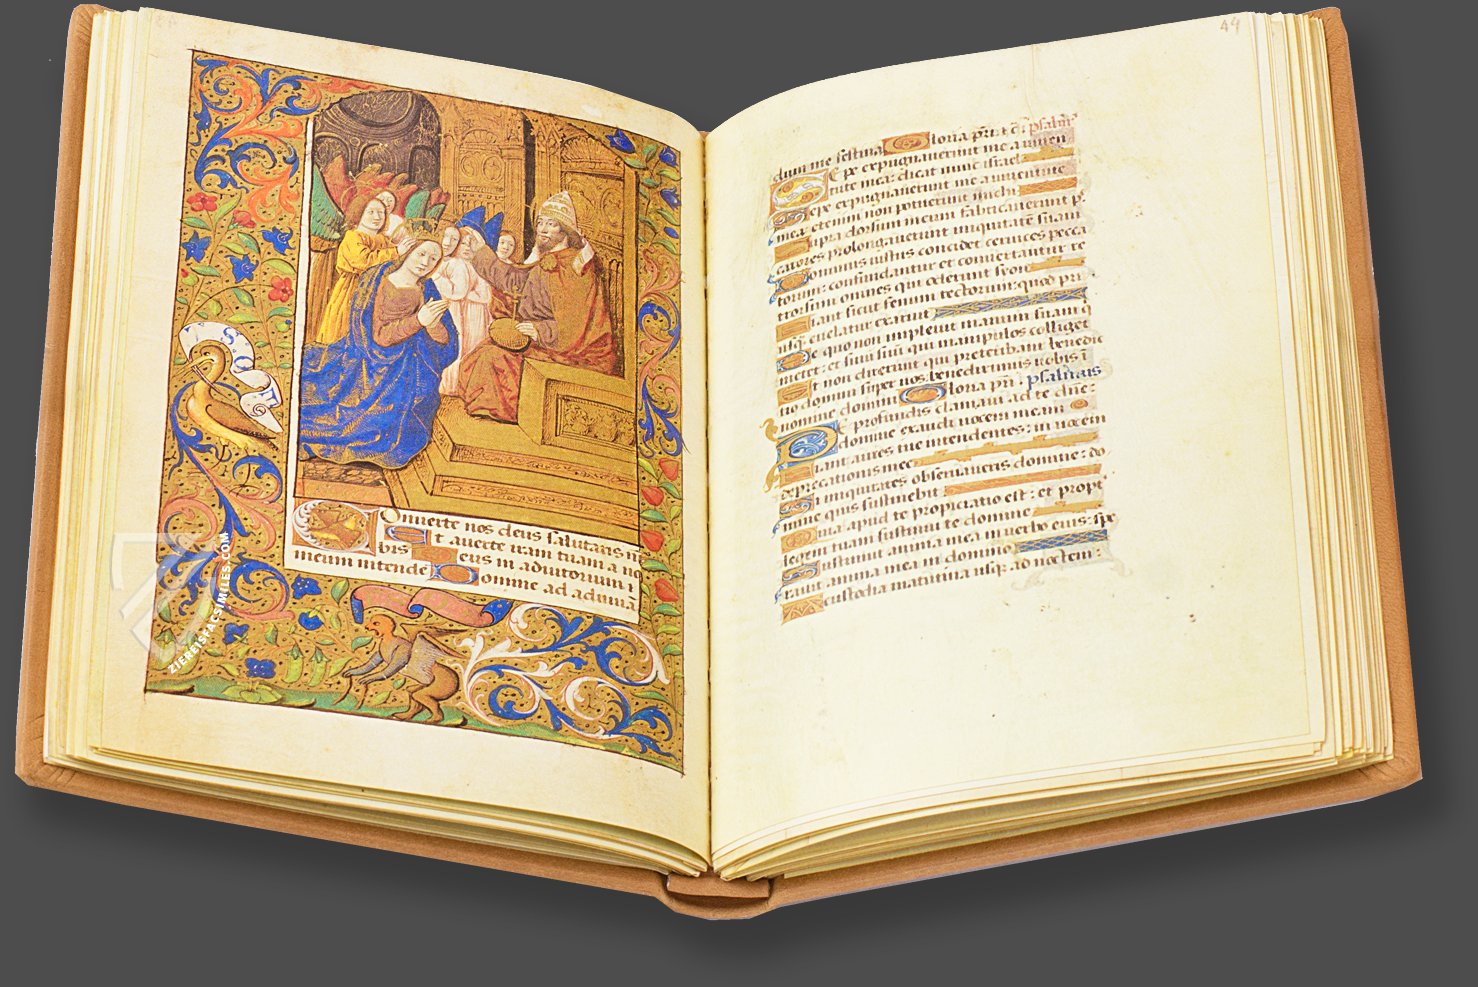 onuerte nos deus salutaris n̄r
bis Et auerte iram tuam a no
Deus in adiutorium
meum intende Domine ad adiuuā
49
dum me festina Gloria pr̄i. et c̄. psalm̄
Sepe expugnauerunt me a iuuen
tute mea: dicat nunc israel
Sepe expugnauerunt me a iuuentute
mea: etenim non potuerunt michi
Supra dorsum meum fabricauerunt p̄
catores prolongauerunt iniquitatē suam
Dominus iustus concidet ceruices pecca
torum: confundantur et conuertantur re
trorsum omnes qui oderunt syon
Fiant sicut fenum tectorum: quod pri
usq̄ euelatur exaruit
De quo non impleuit manum suam q̄
metet: et sinū suū qui manipulos colliget
Et non dixerunt qui preteribant benedic
tio domini super uos benediximus uobis ī
nomine domini Gloria pr̄i. psalmus
De profundis clamaui ad te dn̄e:
domine exaudi uocem meam
Fiant aures tue intendentes: in uocem
deprecationis mee
Si iniquitates obseruaueris domine: do
mine quis sustinebit
Quia apud te propiciatio est: et propt
legem tuam sustinui te domine
Sustinuit anima mea in uerbo eius: spe
rauit anima mea in domino
A custodia matutina usq̄ ad noctem:
ZIEREISFACSIMILES.COM